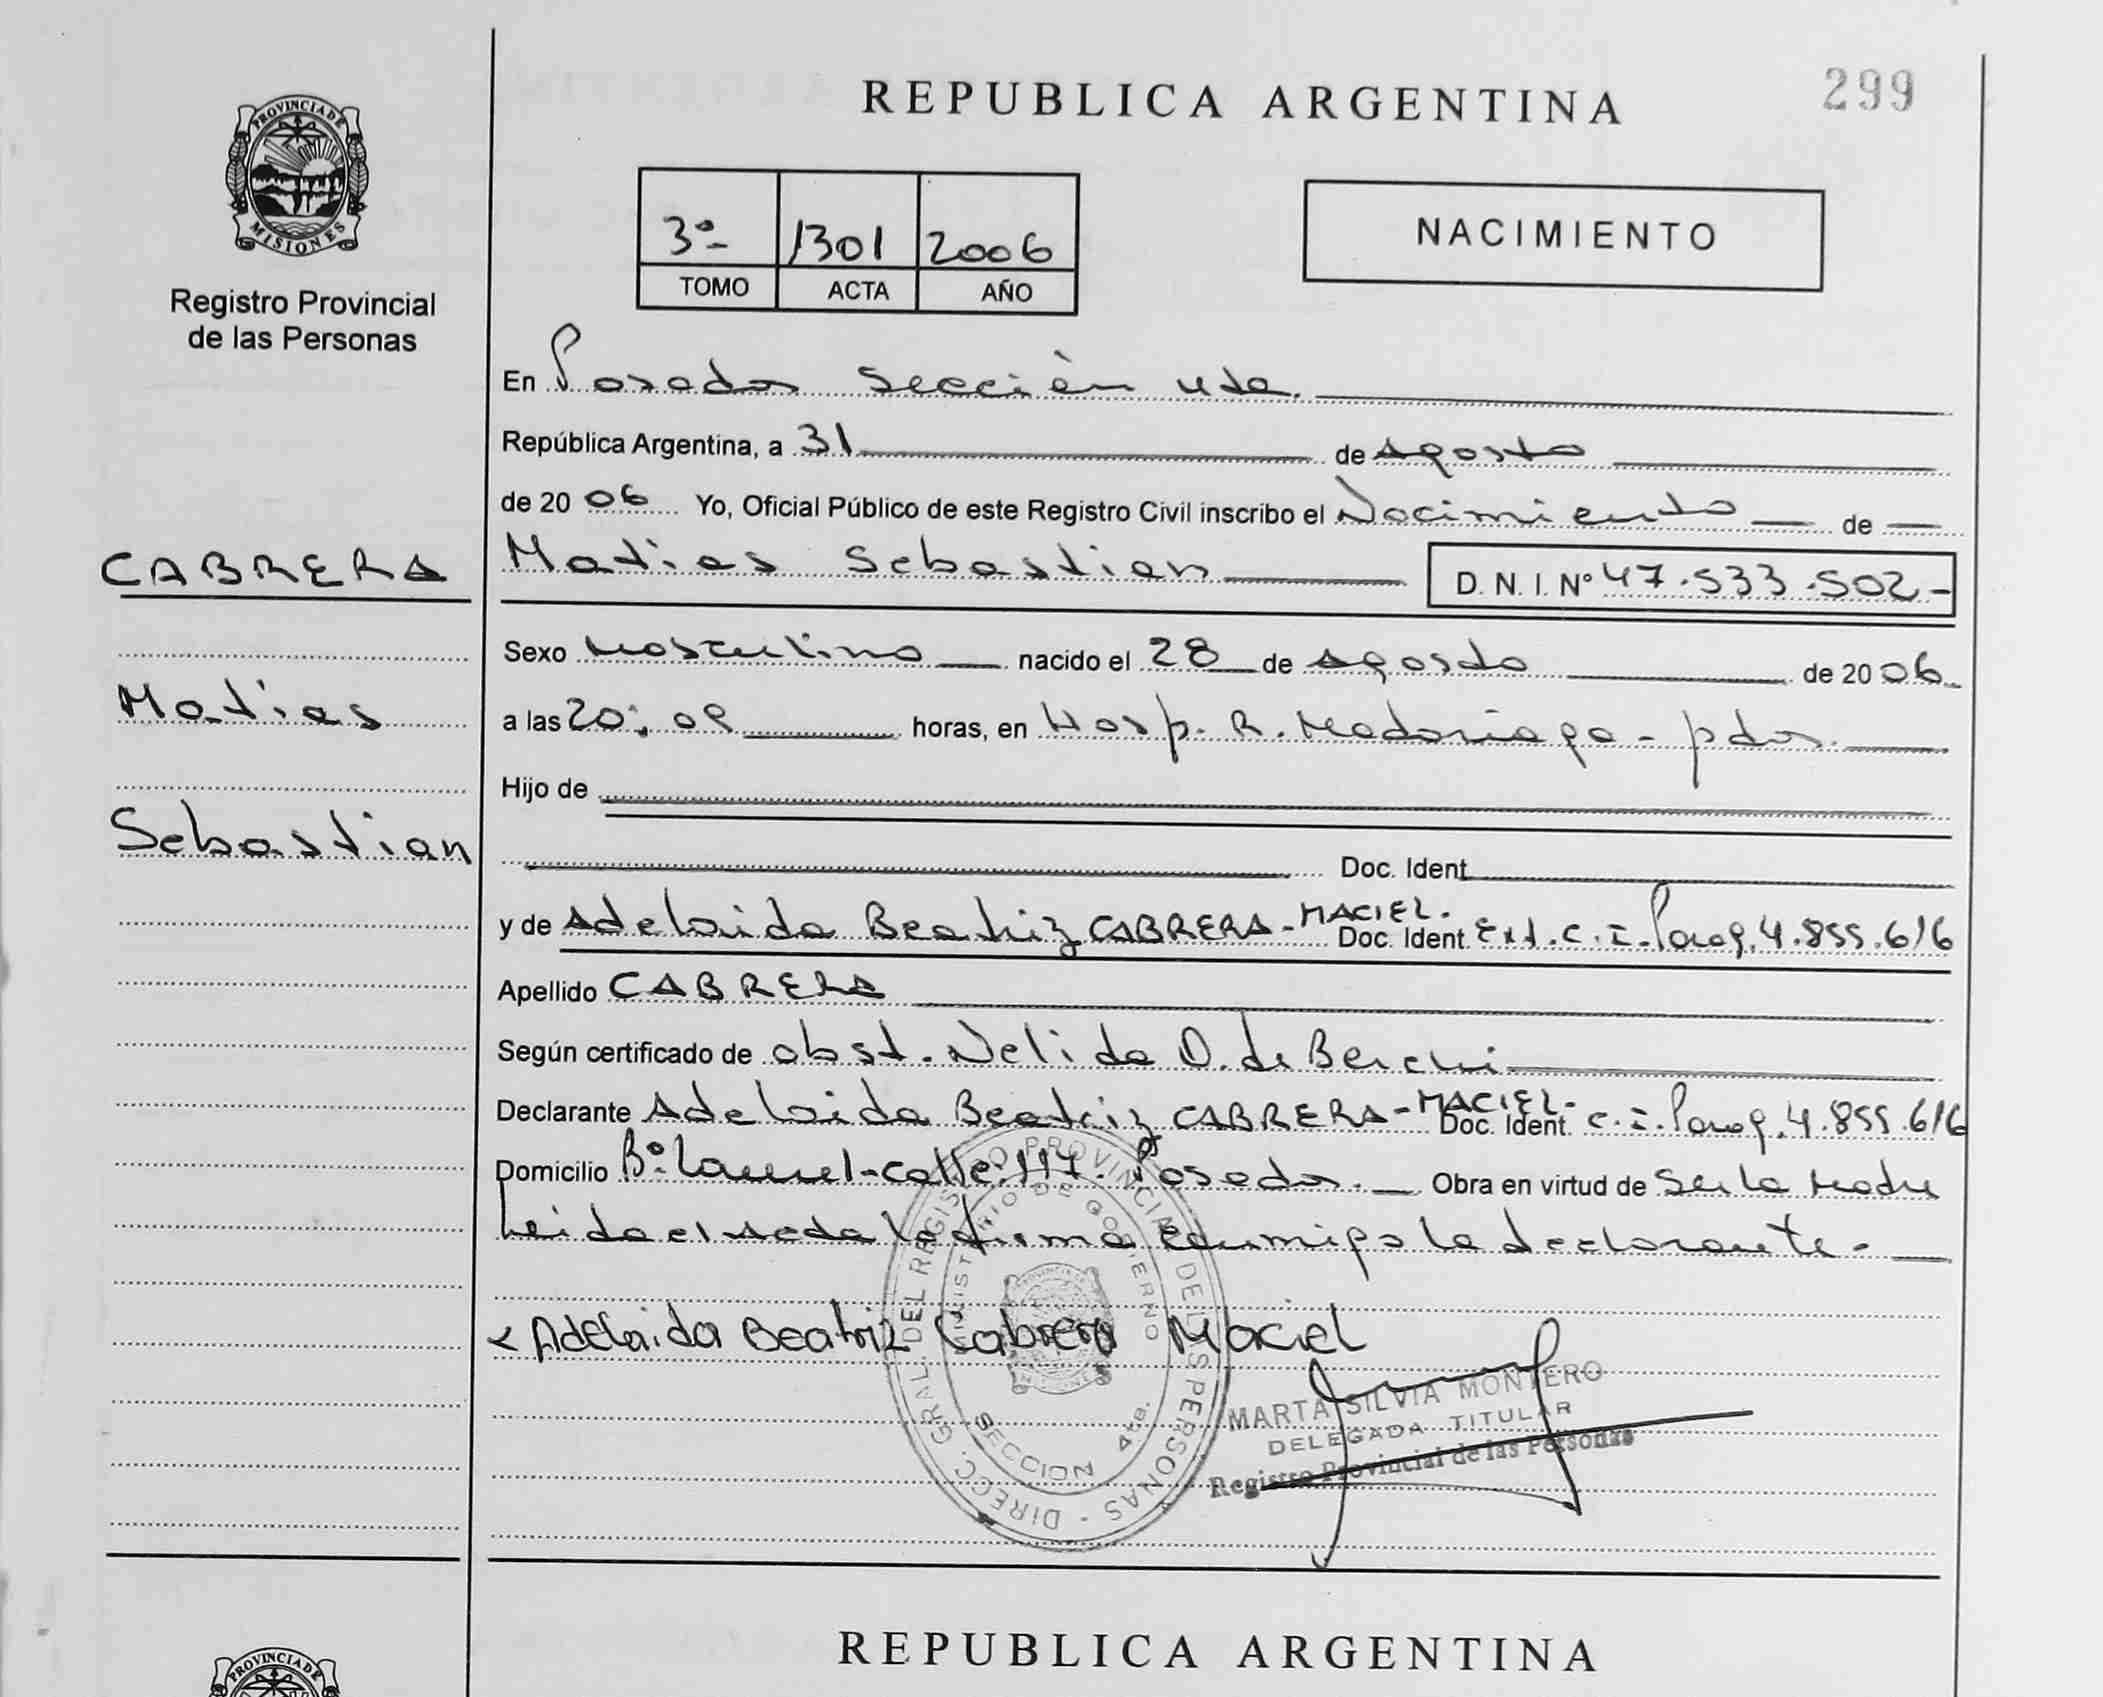 299
REPUBLICA ARGENTINA
PROVINCIA DE MISIONES
Registro Provincial
de las Personas
3º 1301 2006
TOMO ACTA AÑO
NACIMIENTO
En Posadas Sección 4ta.
República Argentina, a 31 de Agosto
de 2006 Yo, Oficial Público de este Registro Civil inscribo el Nacimiento de
CABRERA
Matias Sebastian D. N. I. Nº 47.533.502-
Sexo Masculino nacido el 28 de Agosto de 2006
Matias
a las 20:09 horas, en Hosp. R. Madariaga - pdas.
Hijo de
Sebastian
Doc. Ident
y de Adelaida Beatriz CABRERA-MACIEL. Doc. Ident. Ext. C. I. Parag. 4.855.616
Apellido CABRERA
Según certificado de obst. Nelida O. de Berchi
Declarante Adelaida Beatriz CABRERA-MACIEL- Doc. Ident. C. I. Parag. 4.855.616
Domicilio Bº Laurel-calle:117. Posadas. Obra en virtud de Ser la Madre
Leida el acta la firma conmigo la declarante-
Adelaida Beatriz Cabrera Maciel
DIRECC. GRAL. DEL REGISTRO PROVINCIAL DE LAS PERSONAS
MINISTERIO DE GOBIERNO
SECCION 4ta.
MARTA SILVIA MONTERO
DELEGADA TITULAR
Registro Provincial de las Personas
REPUBLICA ARGENTINA
PROVINCIA DE